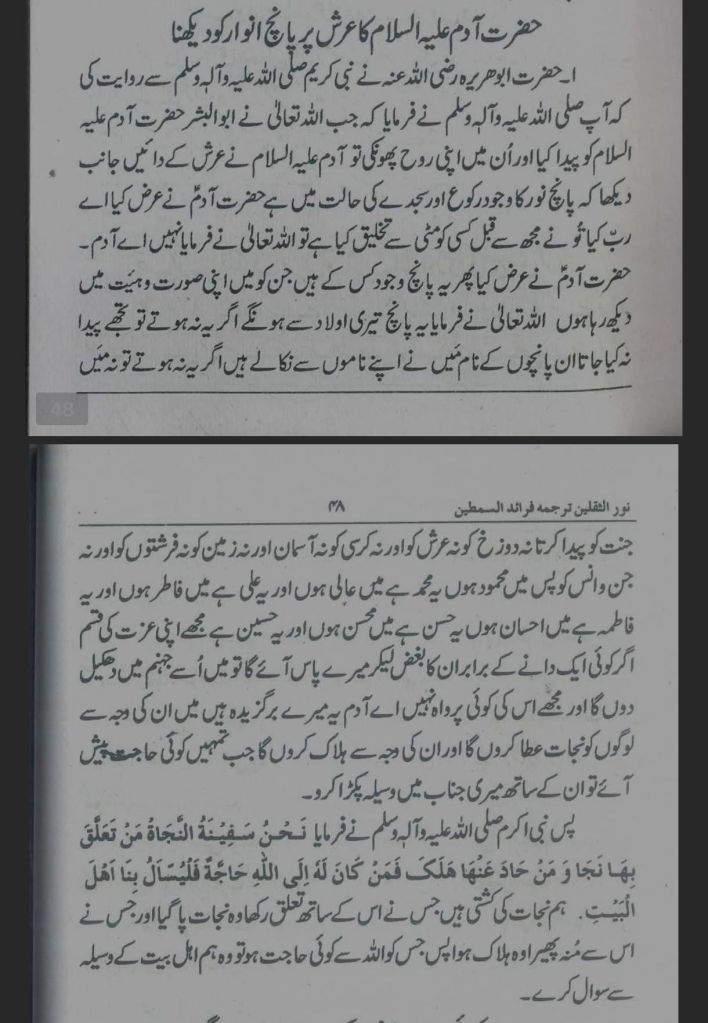 حضرت آدم علیہ السلام کا عرش پر پانچ انوار کو دیکھنا
۱۔ حضرت ابوھریرہ رضی اللہ عنہ نے نبی کریم صلی اللہ علیہ وآلہ وسلم سے روایت کی
کہ آپ صلی اللہ علیہ وآلہ وسلم نے فرمایا کہ جب اللہ تعالیٰ نے ابوالبشر حضرت آدم علیہ
السلام کو پیدا کیا اور اُن میں اپنی روح پھونکی تو آدم علیہ السلام نے عرش کے دائیں جانب
دیکھا کہ پانچ نور کا وجود رکوع اور سجدے کی حالت میں ہے حضرت آدمؑ نے عرض کیا اے
ربّ کیا تُو نے مجھ سے قبل کسی کو مٹی سے تخلیق کیا ہے تو اللہ تعالیٰ نے فرمایا نہیں اے آدم۔
حضرت آدمؑ نے عرض کیا پھر یہ پانچ وجود کس کے ہیں جن کو میں اپنی صورت و ہیئت میں
دیکھ رہا ہوں اللہ تعالیٰ نے فرمایا یہ پانچ تیری اولاد سے ہونگے اگر یہ نہ ہوتے تو تجھے پیدا
نہ کیا جاتا ان پانچوں کے نام مَیں نے اپنے ناموں سے نکالے ہیں اگر یہ نہ ہوتے تو نہ مَیں
48
نور الثقلین ترجمہ فرائد السمطین ۴۸
جنت کو پیدا کرتا نہ دوزخ کو نہ عرش کو اور نہ کرسی کو نہ آسمان اور نہ زمین کو نہ فرشتوں کو اور نہ
جن و انس کو پس میں محمود ہوں یہ محمد ہے میں عالی ہوں اور یہ علی ہے میں فاطر ہوں اور یہ
فاطمہ ہے میں احسان ہوں یہ حسن ہے میں محسن ہوں اور یہ حسین ہے مجھے اپنی عزت کی قسم
اگر کوئی ایک دانے کے برابر ان کا بغض لیکر میرے پاس آئے گا تو میں اُسے جہنم میں دھکیل
دوں گا اور مجھے اس کی کوئی پرواہ نہیں اے آدم یہ میرے برگزیدہ ہیں میں ان کی وجہ سے
لوگوں کو نجات عطا کروں گا اور ان کی وجہ سے ہلاک کروں گا جب تمہیں کوئی حاجت پیش
آئے تو ان کے ساتھ میری جناب میں وسیلہ پکڑا کرو۔
پس نبی اکرم صلی اللہ علیہ وآلہ وسلم نے فرمایا نَحْنُ سَفِیْنَةُ النَّجَاةُ مَنْ تَعَلَّقَ
بِهَا نَجَا وَ مَنْ حَادَ عَنْهَا هَلَکَ فَمَنْ کَانَ لَهٗ اِلَی اللّٰهِ حَاجَّةٌ فَلْیُسْاَلُ بِنَا اَهْلَ
الْبَیْتِ۔ ہم نجات کی کشتی ہیں جس نے اس کے ساتھ تعلق رکھا وہ نجات پا گیا اور جس نے
اس سے مُنہ پھیرا وہ ہلاک ہوا پس جس کو اللہ سے کوئی حاجت ہو تو وہ ہم اہل بیت کے وسیلہ
سے سوال کرے۔